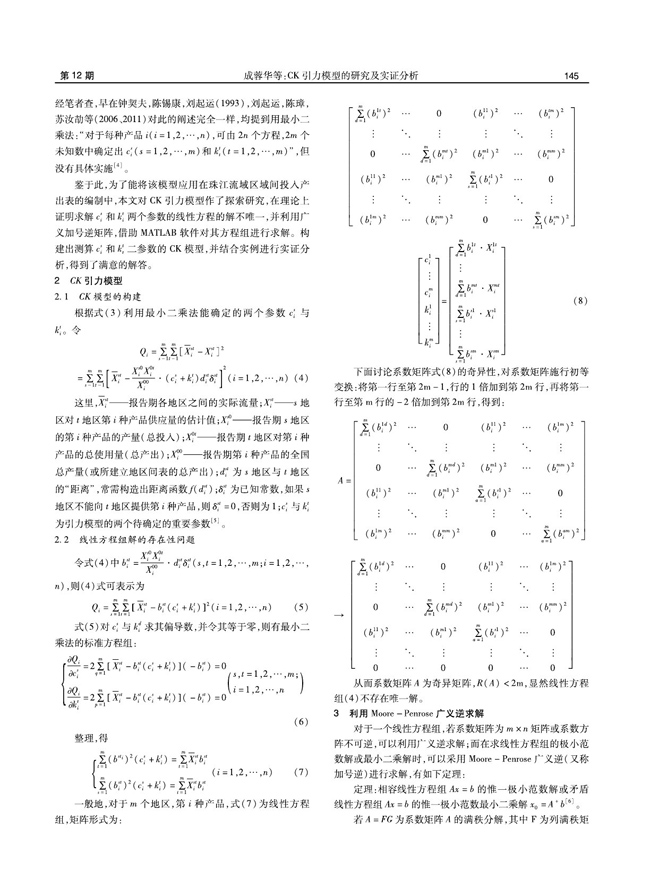 第 12 期
成蓉华等:CK 引力模型的研究及实证分析
145
经笔者查,早在钟契夫,陈锡康,刘起运(1993),刘起运,陈璋,
苏汝劼等(2006、2011)对此的阐述完全一样,均提到用最小二
乘法:“对于每种产品 i(i=1,2,…,n),可由 2n 个方程,2m 个
未知数中确定出 c_i^s(s=1,2,…,m)和 k_i^t(t=1,2,…,m)”,但
没有具体实施[4]。
鉴于此,为了能将该模型应用在珠江流域区域间投入产
出表的编制中,本文对 CK 引力模型作了探索研究,在理论上
证明求解 c_i^s 和 k_i^t 两个参数的线性方程的解不唯一,并利用广
义加号逆矩阵,借助 MATLAB 软件对其方程组进行求解。构
建出测算 c_i^s 和 k_i^t 二参数的 CK 模型,并结合实例进行实证分
析,得到了满意的解答。
2 CK 引力模型
2.1 CK 模型的构建
根据式(3)利用最小二乘法能确定的两个参数 c_i^s 与
k_i^t。令
Q_i = Σ_{s=1}^m Σ_{t=1}^m [X̄_i^{st} − X_i^{st}]^2
= Σ_{s=1}^m Σ_{t=1}^m [X̄_i^{st} − (X_i^{s0} X_i^{0t} / X_i^{00}) · (c_i^s + k_i^t) d_i^{st} δ_i^{st}]^2 (i=1,2,…,n) (4)
这里,X̄_i^{st}——报告期各地区之间的实际流量;X_i^{st}——s 地
区对 t 地区第 i 种产品供应量的估计值;X_i^{s0}——报告期 s 地区
的第 i 种产品的产量(总投入);X_i^{0t}——报告期 t 地区对第 i 种
产品的总使用量(总产出);X_i^{00}——报告期第 i 种产品的全国
总产量(或所建立地区间表的总产出);d_i^{st} 为 s 地区与 t 地区
的“距离”,常需构造出距离函数 f(d_i^{st});δ_i^{st} 为已知常数,如果 s
地区不能向 t 地区提供第 i 种产品,则 δ_i^{st}=0,否则为 1;c_i^s 与 k_i^t
为引力模型的两个待确定的重要参数[5]。
2.2 线性方程组解的存在性问题
令式(4)中 b_i^{st} = (X_i^{s0} X_i^{0t} / X_i^{00}) · d_i^{st} δ_i^{st} (s,t=1,2,…,m;i=1,2,…,
n),则(4)式可表示为
Q_i = Σ_{s=1}^m Σ_{t=1}^m [X̄_i^{st} − b_i^{st}(c_i^s + k_i^t)]^2 (i=1,2,…,n) (5)
式(5)对 c_i^s 与 k_i^t 求其偏导数,并令其等于零,则有最小二
乘法的标准方程组:
∂Q_i/∂c_i^s = 2 Σ_{q=1}^m [X̄_i^{st} − b_i^{st}(c_i^s + k_i^t)](−b_i^{st}) = 0
∂Q_i/∂k_i^t = 2 Σ_{p=1}^m [X̄_i^{st} − b_i^{st}(c_i^s + k_i^t)](−b_i^{st}) = 0
(s,t=1,2,…,m;
i=1,2,…,n)
(6)
整理,得
Σ_{t=1}^m (b_i^{st})^2 (c_i^s + k_i^t) = Σ_{t=1}^m X̄_i^{st} b_i^{st}
Σ_{s=1}^m (b_i^{st})^2 (c_i^s + k_i^t) = Σ_{s=1}^m X̄_i^{st} b_i^{st}
(i=1,2,…,n) (7)
一般地,对于 m 个地区,第 i 种产品,式(7)为线性方程
组,矩阵形式为:
Σ(b_i^{1t})^2 … 0 (b_i^{11})^2 … (b_i^{1m})^2
⋮ ⋱ ⋮ ⋮ ⋱ ⋮
0 … Σ(b_i^{mt})^2 (b_i^{m1})^2 … (b_i^{mm})^2
(b_i^{11})^2 … (b_i^{m1})^2 Σ(b_i^{s1})^2 … 0
⋮ ⋱ ⋮ ⋮ ⋱ ⋮
(b_i^{1m})^2 … (b_i^{mm})^2 0 … Σ(b_i^{sm})^2
c_i^1 ⋮ c_i^m k_i^1 ⋮ k_i^m
=
Σb_i^{1t} · X_i^{1t}
⋮
Σb_i^{mt} · X_i^{mt}
Σb_i^{s1} · X_i^{s1}
⋮
Σb_i^{sm} · X_i^{sm}
(8)
下面讨论系数矩阵式(8)的奇异性,对系数矩阵施行初等
变换:将第一行至第 2m−1,行的 1 倍加到第 2m 行,再将第一
行至第 m 行的 −2 倍加到第 2m 行,得到:
A =
Σ(b_i^{1d})^2 … 0 (b_i^{11})^2 … (b_i^{1m})^2
⋮ ⋱ ⋮ ⋮ ⋱ ⋮
0 … Σ(b_i^{md})^2 (b_i^{m1})^2 … (b_i^{mm})^2
(b_i^{11})^2 … (b_i^{m1})^2 Σ(b_i^{s1})^2 … 0
⋮ ⋱ ⋮ ⋮ ⋱ ⋮
(b_i^{1m})^2 … (b_i^{mm})^2 0 … Σ(b_i^{sm})^2
→
Σ(b_i^{1d})^2 … 0 (b_i^{11})^2 … (b_i^{1m})^2
⋮ ⋱ ⋮ ⋮ ⋱ ⋮
0 … Σ(b_i^{md})^2 (b_i^{m1})^2 … (b_i^{mm})^2
(b_i^{11})^2 … (b_i^{m1})^2 Σ(b_i^{s1})^2 … 0
⋮ ⋱ ⋮ ⋮ ⋱ ⋮
0 … 0 0 … 0
从而系数矩阵 A 为奇异矩阵,R(A)<2m,显然线性方程
组(4)不存在唯一解。
3 利用 Moore−Penrose 广义逆求解
对于一个线性方程组,若系数矩阵为 m×n 矩阵或系数方
阵不可逆,可以利用广义逆求解;而在求线性方程组的极小范
数解或最小二乘解时,可以采用 Moore−Penrose 广义逆(又称
加号逆)进行求解,有如下定理:
定理:相容线性方程组 Ax=b 的惟一极小范数解或矛盾
线性方程组 Ax=b 的惟一极小范数最小二乘解 x_0=A^+b[6]。
若 A=FG 为系数矩阵 A 的满秩分解,其中 F 为列满秩矩